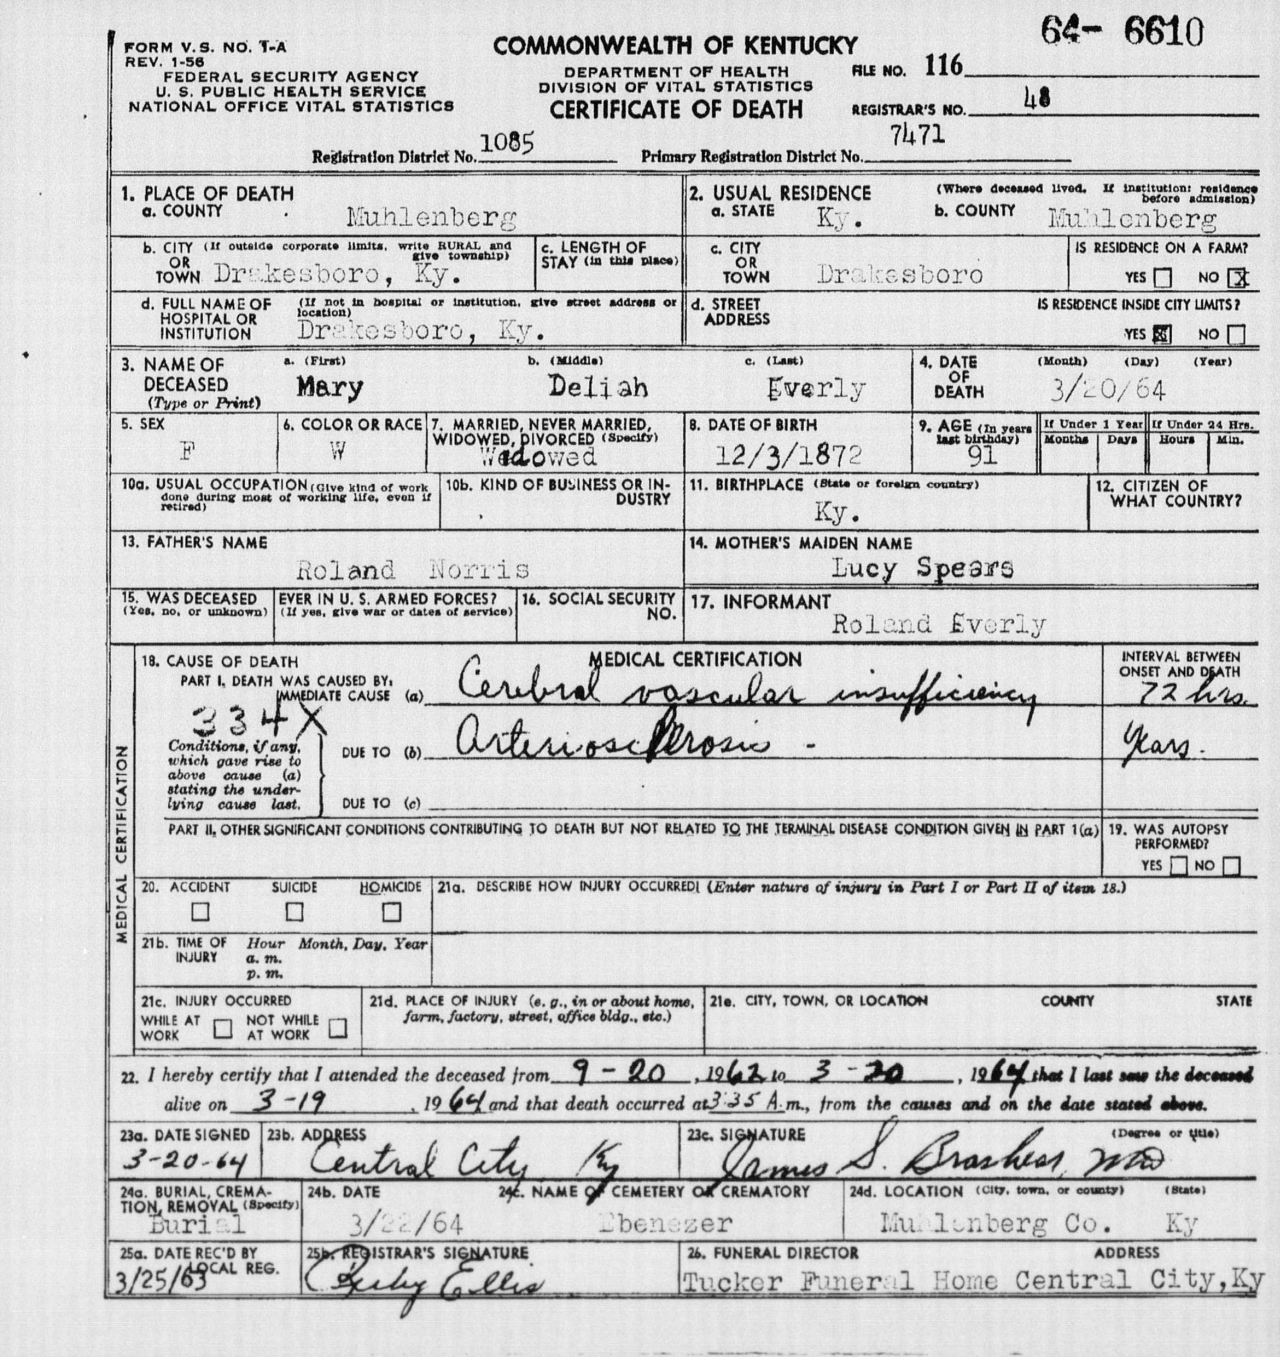 64- 6610
FORM V.S. NO. 1-A
REV. 1-56
FEDERAL SECURITY AGENCY
U. S. PUBLIC HEALTH SERVICE
NATIONAL OFFICE VITAL STATISTICS
COMMONWEALTH OF KENTUCKY
DEPARTMENT OF HEALTH
DIVISION OF VITAL STATISTICS
CERTIFICATE OF DEATH
FILE NO. 116
REGISTRAR'S NO. 48
Registration District No. 1085
Primary Registration District No. 7471
1. PLACE OF DEATH
a. COUNTY Muhlenberg
2. USUAL RESIDENCE (Where deceased lived. If institution: residence before admission)
a. STATE Ky. b. COUNTY Muhlenberg
b. CITY (If outside corporate limits, write RURAL and give township)
OR
TOWN Drakesboro, Ky.
c. LENGTH OF STAY (in this place)
c. CITY
OR
TOWN Drakesboro
IS RESIDENCE ON A FARM?
YES NO X
d. FULL NAME OF HOSPITAL OR INSTITUTION (If not in hospital or institution, give street address or location)
Drakesboro, Ky.
d. STREET ADDRESS
IS RESIDENCE INSIDE CITY LIMITS?
YES NO
3. NAME OF DECEASED (Type or Print)
a. (First) b. (Middle) c. (Last)
Mary Deliah Everly
4. DATE OF DEATH (Month) (Day) (Year)
3/20/64
5. SEX
F
6. COLOR OR RACE
W
7. MARRIED, NEVER MARRIED, WIDOWED, DIVORCED (Specify)
Widowed
8. DATE OF BIRTH
12/3/1872
9. AGE (In years last birthday)
91
If Under 1 Year If Under 24 Hrs.
Months Days Hours Min.
10a. USUAL OCCUPATION (Give kind of work done during most of working life, even if retired)
10b. KIND OF BUSINESS OR INDUSTRY
11. BIRTHPLACE (State or foreign country)
Ky.
12. CITIZEN OF WHAT COUNTRY?
13. FATHER'S NAME
Roland Norris
14. MOTHER'S MAIDEN NAME
Lucy Spears
15. WAS DECEASED EVER IN U. S. ARMED FORCES?
(Yes, no, or unknown) (If yes, give war or dates of service)
16. SOCIAL SECURITY NO.
17. INFORMANT
Roland Everly
MEDICAL CERTIFICATION
18. CAUSE OF DEATH
MEDICAL CERTIFICATION
INTERVAL BETWEEN ONSET AND DEATH
PART I. DEATH WAS CAUSED BY:
IMMEDIATE CAUSE (a) Cerebral vascular insufficiency 72 hrs.
334X
Conditions, if any, which gave rise to above cause (a) stating the underlying cause last.
DUE TO (b) Arteriosclerosis - Years.
DUE TO (c)
PART II. OTHER SIGNIFICANT CONDITIONS CONTRIBUTING TO DEATH BUT NOT RELATED TO THE TERMINAL DISEASE CONDITION GIVEN IN PART 1(a)
19. WAS AUTOPSY PERFORMED?
YES NO
20. ACCIDENT SUICIDE HOMICIDE
21a. DESCRIBE HOW INJURY OCCURRED! (Enter nature of injury in Part I or Part II of item 18.)
21b. TIME OF INJURY Hour Month, Day, Year
a. m.
p. m.
21c. INJURY OCCURRED
WHILE AT WORK NOT WHILE AT WORK
21d. PLACE OF INJURY (e. g., in or about home, farm, factory, street, office bldg., etc.)
21e. CITY, TOWN, OR LOCATION COUNTY STATE
22. I hereby certify that I attended the deceased from 9-20, 1962 to 3-20, 1964 that I last saw the deceased
alive on 3-19, 1964 and that death occurred at 3:35 A.m., from the causes and on the date stated above.
23a. DATE SIGNED
3-20-64
23b. ADDRESS
Central City Ky
23c. SIGNATURE (Degree or title)
James S. Brashear, MD
24a. BURIAL, CREMATION, REMOVAL (Specify)
Burial
24b. DATE
3/22/64
24c. NAME OF CEMETERY OR CREMATORY
Ebenezer
24d. LOCATION (City, town, or county) (State)
Muhlenberg Co. Ky
25a. DATE REC'D BY LOCAL REG.
3/25/63
25b. REGISTRAR'S SIGNATURE
Ruby Ellis
26. FUNERAL DIRECTOR ADDRESS
Tucker Funeral Home Central City, Ky